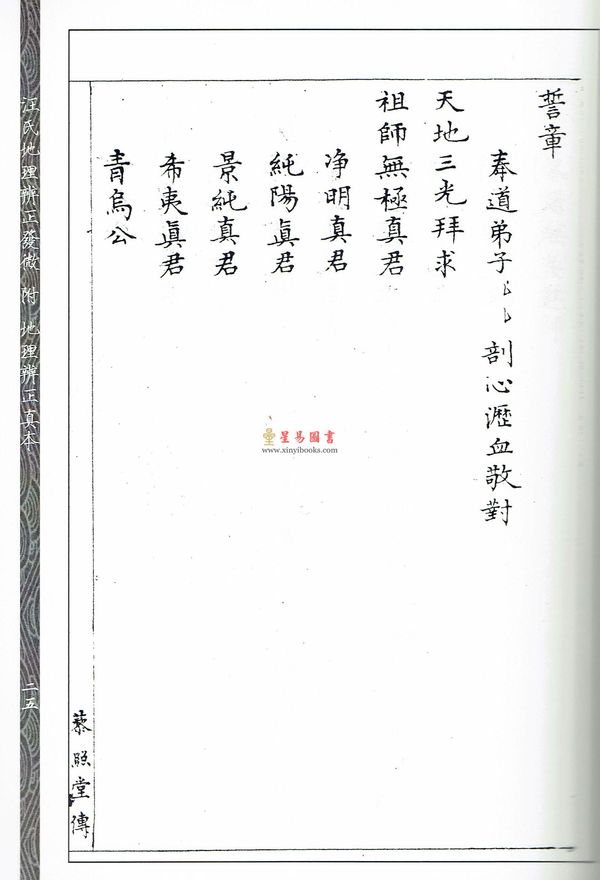 誓章
奉道弟子 剖心瀝血敬對
天地三光拜求
祖師無極真君
净明真君
純陽眞君
景純真君
希夷眞君
青烏公
藜照堂傳
汪氏地理辨正發微 附 地理辨正真本
二五
星易圖書
www.xinyibooks.com